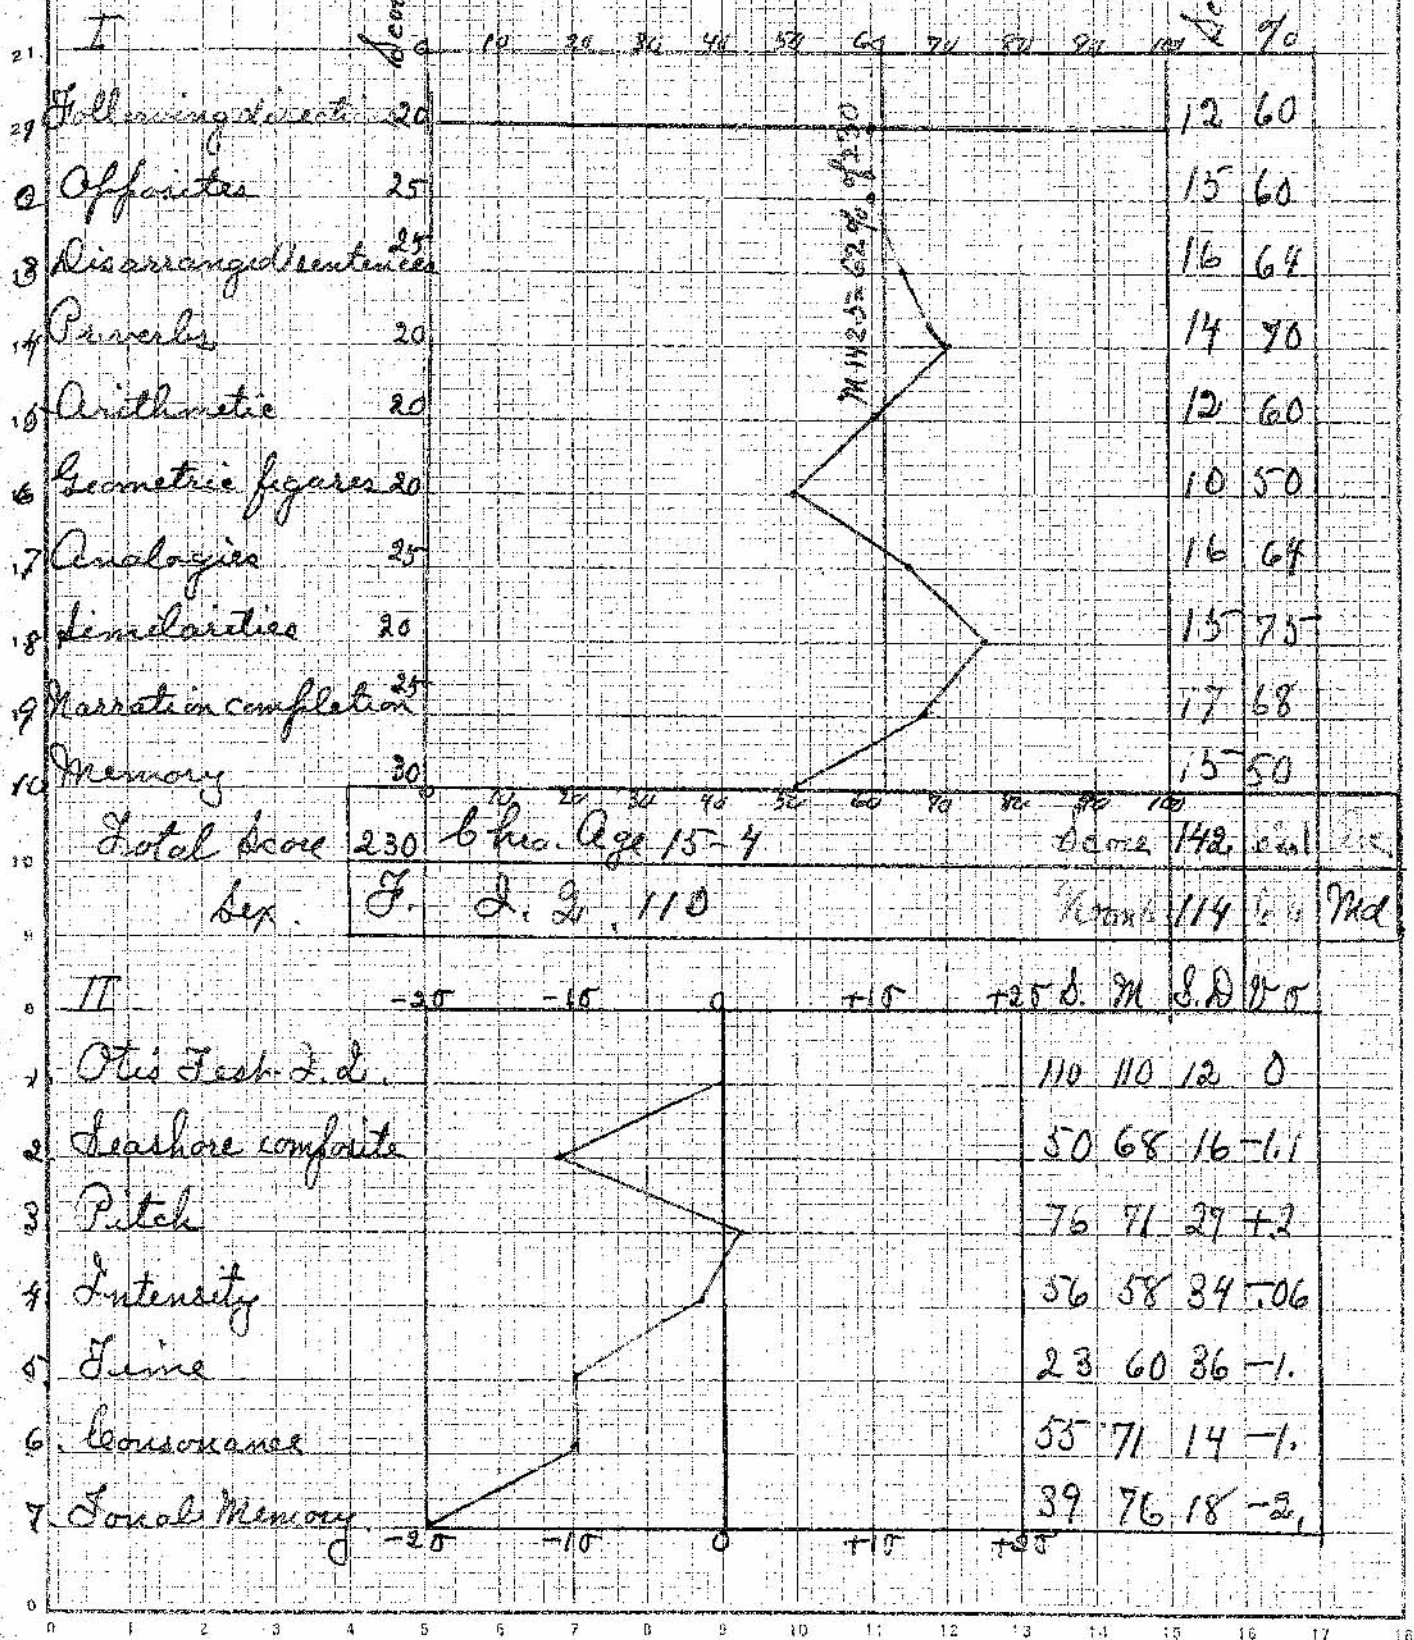 I Score 0 10 20 30 40 50 60 70 80 90 100 Sc %
21
29 Following directi 20 12 60
2 Opposites 25 15 60
3 Disarranged sentences 25 16 64
4 Proverbs 20 14 70
5 Arithmetic 20 12 60
6 Geometric figures 20 10 50
7 Analogies 25 16 64
8 Similarities 20 15 75
9 Narration completion 25 17 68
10 Memory 30 15 50
M 142.5=62%. of 230
0 10 20 30 40 50 60 70 80 90 100
Total Score 230 Chro. Age 15-4 Score 142
10
Sex. F. I. Q. 110 Rank 114 Md
9
II -2σ -1σ 0 +1σ +2σ S. M S.D V σ
8
1. Otis Test. I.Q. 110 110 12 0
2. Seashore composite 50 68 16 -1.1
3 Pitch 76 71 27 +.2
4. Intensity 56 58 34 -.06
5. Time 23 60 36 -1.
6. Consonance 55 71 14 -1.
7. Tonal Memory 39 76 18 -2.
-2σ -1σ 0 +1σ +2σ
0
0 1 2 3 4 5 6 7 8 9 10 11 12 13 14 15 16 17 18